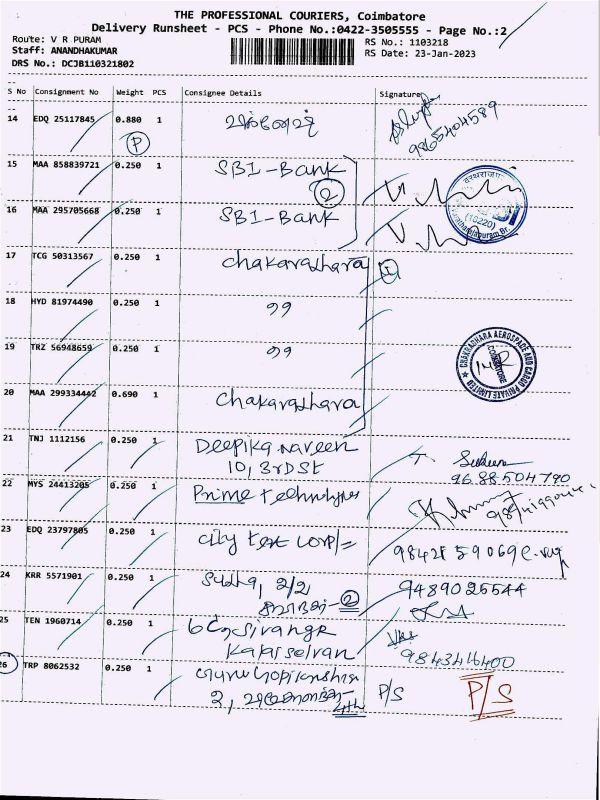 THE PROFESSIONAL COURIERS, Coimbatore
Delivery Runsheet - PCS - Phone No.:0422-3505555 - Page No.:2
Route: V R PURAM
RS No.: 1103218
Staff: ANANDHAKUMAR
RS Date: 23-Jan-2023
DRS No.: DCJB110321802
S No Consignment No Weight PCS Consignee Details Signature
14 EDQ 25117845 0.880 1
P
9865404589
15 MAA 858839721 0.250 1 SBI-Bank
2
16 MAA 295705668 0.250 1 SBI-Bank
(10220)
17 TCG 50313567 0.250 1 chakaradhara
18 HYD 81974490 0.250 1 ,,
19 TRZ 56948659 0.250 1 ,,
CHAKRADHARA AEROSPACE AND CARGO PRIVATE LIMITED
COIMBATORE
20 MAA 299334442 0.690 1 chakaradhara
21 TNJ 1112156 0.250 1 Deepika naveen
10, 3rd St
9688504790
22 MYS 24413205 0.250 1 Prime technologies
23 EDQ 23797805 0.250 1 city text corp/=
98428 59069
24 KRR 5571901 0.250 1 2/2
2
9489025544
25 TEN 1960714 0.250 1
Kalaiselvan
9843416400
26 TRP 8062532 0.250 1
2, 4th P/S P/S